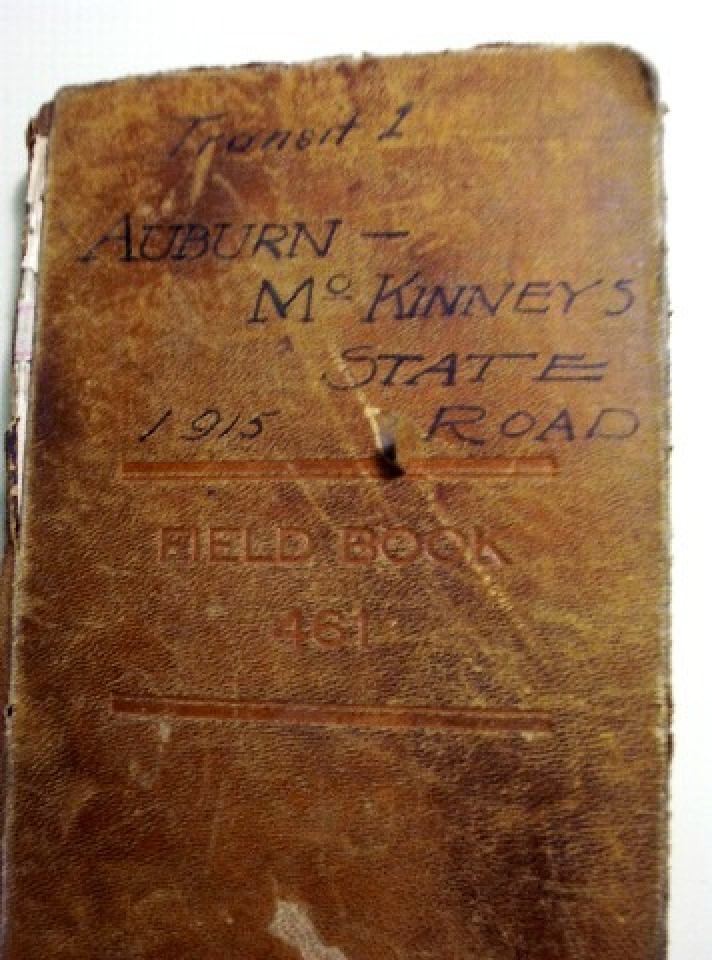 Transit 1
AUBURN –
Mc KINNEYS
STATE
1915 ROAD
FIELD BOOK
461